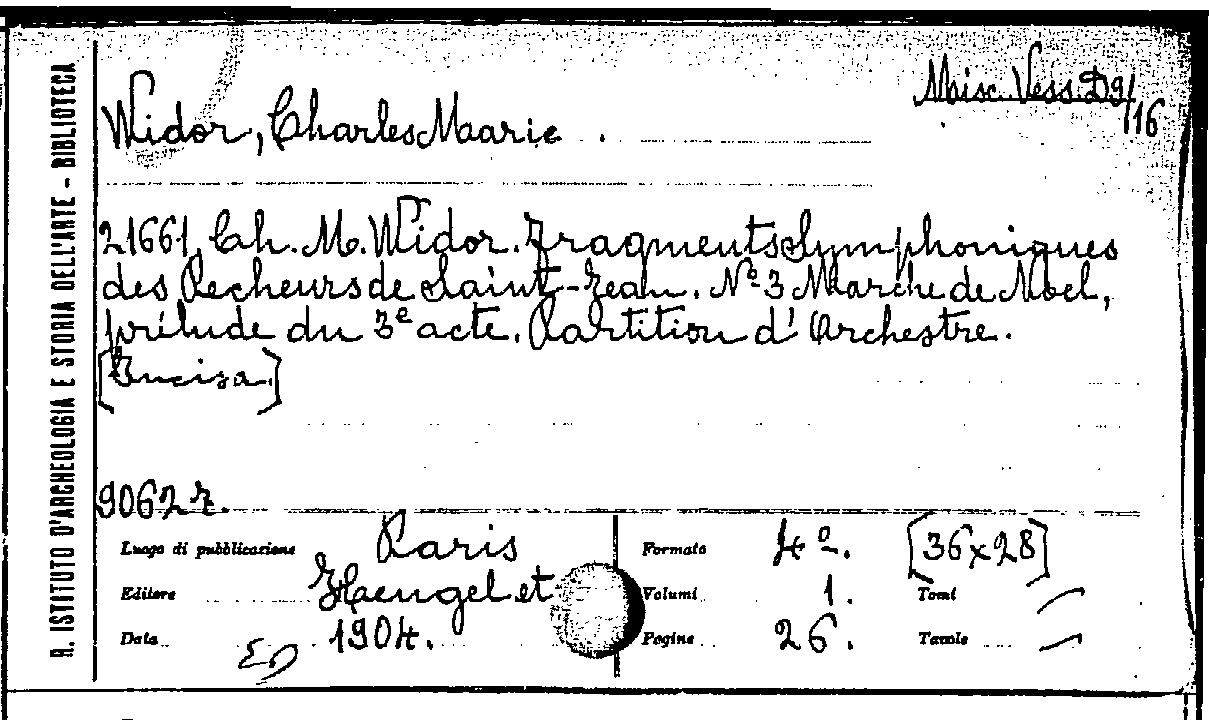 R. ISTITUTO D'ARCHEOLOGIA E STORIA DELL'ARTE - BIBLIOTECA
Misc. Vess. D9/16
Widor, Charles Marie.
21661 Ch. M. Widor. Fragments Symphoniques
des Pecheurs de Saint-Jean. Nº 3 Marche de Noel,
prélude du 3e acte. Partition d'Orchestre.
[Incisa.]
90627.
Luogo di pubblicazione Paris
Formato 4º. [36x28]
Editore Haengel et
Volumi 1. Tomi —
Data 1904.
Pagine 26. Tavole —